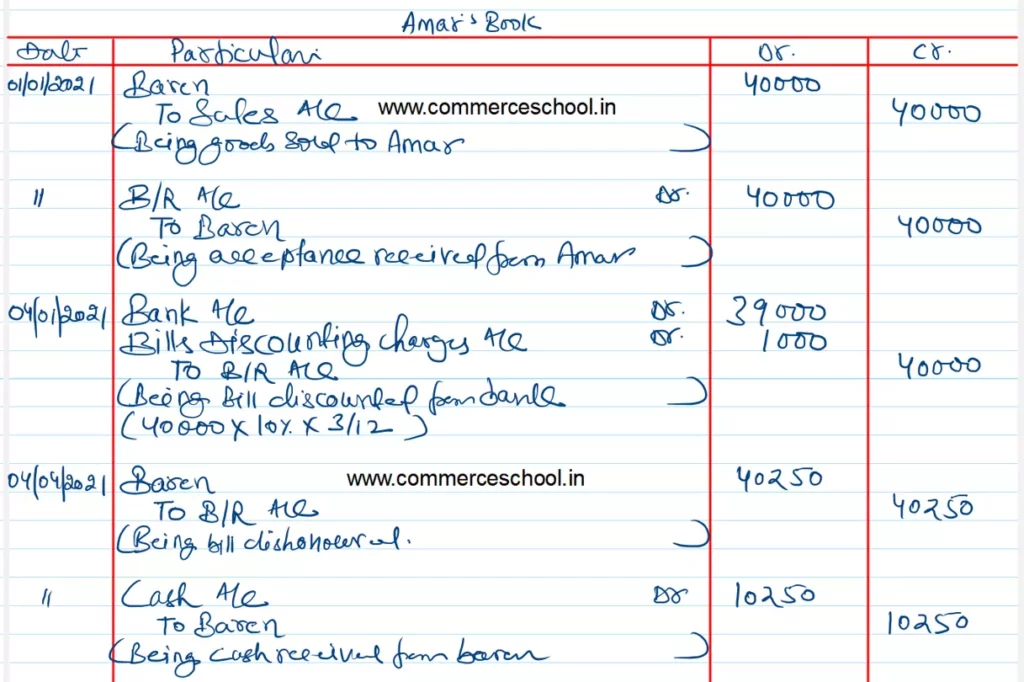 Amar's Book
Date Particulars Dr. Cr.
01/01/2021 Baren 40000
To Sales A/c www.commerceschool.in 40000
(Being goods sold to Amar)
" B/R A/c Dr. 40000
To Baren 40000
(Being acceptance received from Amar)
04/01/2021 Bank A/c Dr. 39000
Bills Discounting charges A/c Dr. 1000
To B/R A/c 40000
(Being bill discounted from bank)
(40000 X 10% X 3/12)
04/04/2021 Baren www.commerceschool.in 40250
To B/R A/c 40250
(Being bill dishonoured.)
" Cash A/c Dr 10250
To Baren 10250
(Being cash received from baren)